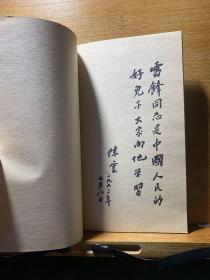 雷鋒同志是中國人民的
好兒子大家向他學習
陳雲
一九六三年